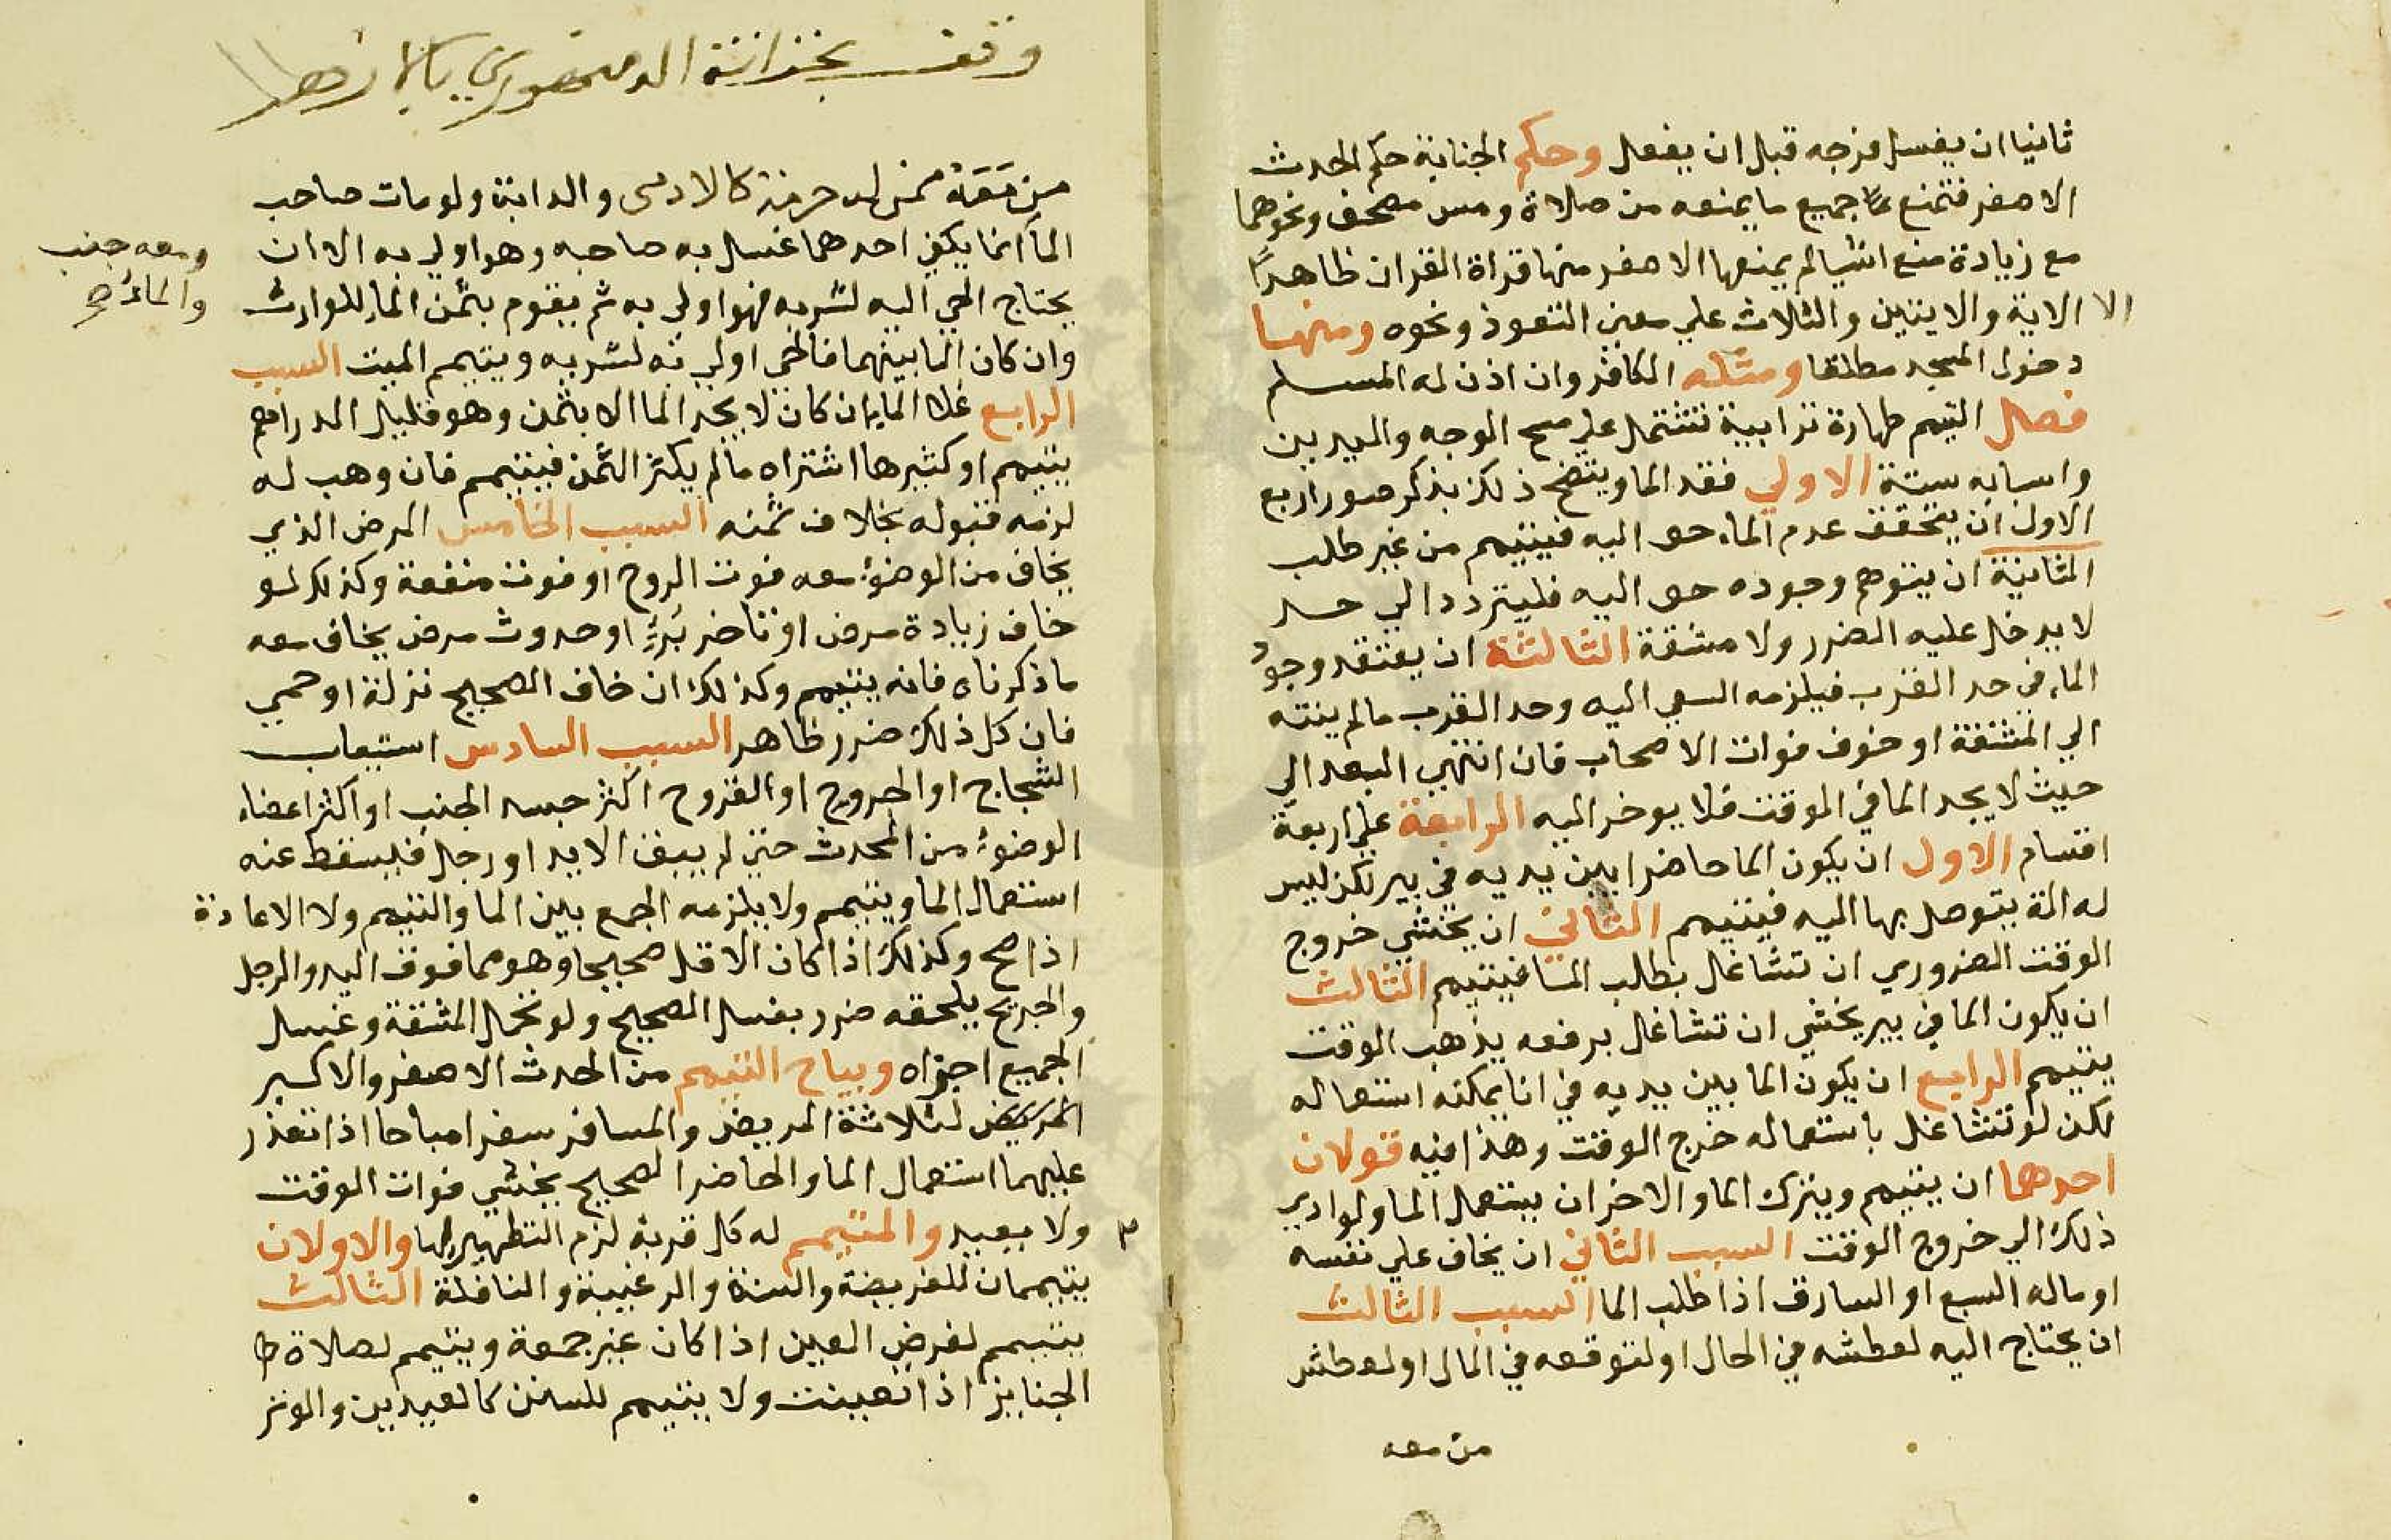 ثانيا ان يغسل فرجه قبل ان يفعل وحكم الجنابة حكم الحدث
الاصغر فتمنع جميع ما يمنعه من صلاة ومس مصحف ونحوهما
مع زيادة منع اشيا لم يمنعها الاصغر منها قراة القران ظاهرا
الا الاية والايتين والثلاث علي معني التعوذ ونحوه ومنها
دخول المسجد مطلقا ومثله الكافر وان اذن له المسلم
فصل التيمم طهارة ترابية تشتمل علي مسح الوجه واليدين
واسبابه ستة الاولي فقد الما ويتضح ذلك بذكر صور اربع
الاول ان يتحقق عدم الماء حواليه فيتيمم من غير طلب
الثانية ان يتوهم وجوده حواليه فليتردد الي حد
لا يدخل عليه الضرر ولا مشقة الثالثة ان يعتقد وجود
الماء في حد القرب فيلزمه السعي اليه وحد القرب مالم ينته
الي المشقة او خوف فوات الاصحاب فان انتهي البعد الي
حيث لا يجد الما في الوقت فلا يوخر اليه الرابعة علي اربعة
اقسام الاول ان يكون الما حاضرا بين يديه في بير لكن ليس
له الة يتوصل بها اليه فيتيمم الثاني ان يخشي خروج
الوقت الضروري ان تشاغل بطلب الما فيتيمم الثالث
ان يكون الما في بير يخشي ان تشاغل برفعه يذهب الوقت
يتيمم الرابع ان يكون الما بين يديه في انا يمكنه استعماله
لكن لو تشاغل باستعماله خرج الوقت وهذا فيه قولان
احدهما ان يتيمم ويترك الما والاخر ان يستعمل الما ولو ادي
ذلك الي خروج الوقت السبب الثاني ان يخاف علي نفسه
او ماله السبع او السارق اذا طلب الما السبب الثالث
ان يحتاج اليه لعطشه في الحال او لتوقعه في المال او لعطش
من معه
وقف بخزانة الدمنهوري بالازهر
من مَعَهُ ممن له حرمة كالادمي والدابة ولو مات صاحب
الما انما يكفي احدهما غسل به صاحبه وهو اولي به الا ان
ومعه جنب
والماء صح
يحتاج الحي اليه لشربه فهو اولي به ثم يقوم بثمن الما للوارث
وان كان الما بينهما فالحي اولي به لشربه ويتيمم الميت السبب
الرابع غلا الما بان كان لا يجد الما الا بثمن وهو قليل الدراهم
يتيمم او كثيرها اشتراه مالم يكثر الثمن فيتيمم فان وهب له
لزمه قبوله بخلاف ثمنه السبب الخامس المرض الذي
يخاف من الوضوء معه فوت الروح او فوت منفعة وكذلك لو
خاف زيادة مرض او تاخر برء او حدوث مرض يخاف معه
ما ذكرناه فانه يتيمم وكذلك ان خاف الصحيح نزلة او حمي
فان كل ذلك ضرر ظاهر السبب السادس استيعاب
الشجاج او الجروح او القروح اكثر جسد الجنب او اكثر اعضاء
الوضوء من المحدث حتي لم يبق الا يد او رجل فيسقط عنه
استعمال الما ويتيمم ولا يلزمه الجمع بين الما والتيمم ولا الاعادة
اذا صح وكذلك اذا كان الاقل صحيحا وهو مما فوق اليد والرجل
والجريح يلحقه ضرر بغسل الصحيح ولو تحمل المشقة وغسل
الجميع اجزاه ويباح التيمم من الحدث الاصغر والاكبر
لثلاثة المريض والمسافر سفرا مباحا اذا تعذر
عليهما استعمال الما والحاضر الصحيح يخشي فوات الوقت
ولا يعيد والمتيمم له كل قربة لزم التطهير لها والاولان
يتيممان للفريضة والسنة والرغيبة والنافلة الثالث
يتيمم لفرض العين اذا كان غير جمعة ويتيمم لصلاة
الجنايز اذا تعينت ولا يتيمم للسنن كالعيدين والوتر